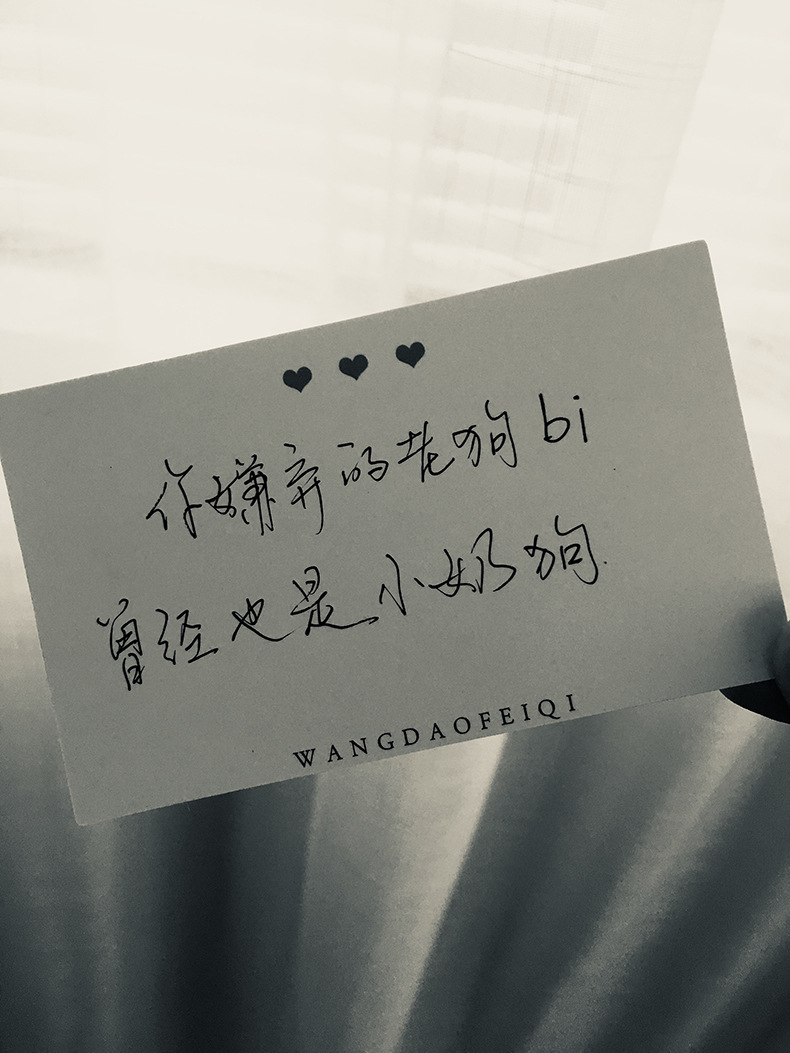 你嫌弃的老狗bi
曾经也是小奶狗.
WANGDAOFEIQI